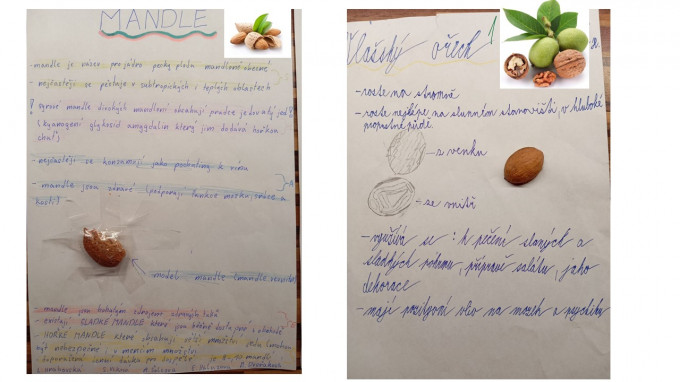 MANDLE
- mandle je název pro jádro pecky plodu mandloně obecné
- nejčastěji se pěstuje v subtropických i teplých oblastech
- syrové mandle divokých mandloní obsahují prudce jedovatý jed!
(kyanogenní glykosid amygdalin který jim dodává hořkou
chuť)
- nejčastěji se konzumují jako pochutiny k vínu
- mandle jsou zdravé (podporují funkce mozku, srdce a
kosti)
model mandle
- mandle jsou bohatým zdrojem zdravých tuků
- existují SLADKÉ MANDLE které jsou
- HOŘKÉ MANDLE které obsahují větší množství
být nebezpečné i v menším množství
doporučená denní dávka
Vlašský ořech 1
- roste na stromě
- roste nejlépe na slunném stanovišti, v hluboké
propustné půdě.
- z venku
- ze vnitř
- využívá se : k pečení slaných a
sladkých pokrmů, přípravě salátů, jako
dekorace
- mají pozitivní vliv na mozek a psychiku